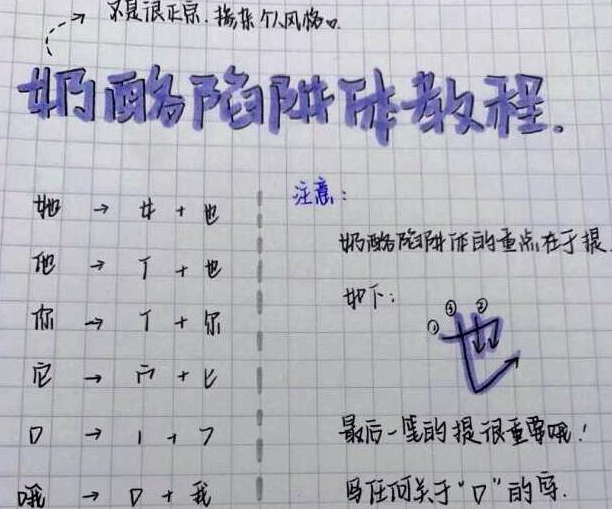 不是很正宗.掺杂个人风格。
奶酪陷阱体教程.
她 → 女 + 也
他 → 亻 + 也
你 → 亻 + 尔
它 → 宀 + 匕
口 → 丨 + 𠃌
哦 → 口 + 我
注意:
奶酪陷阱体的重点在于提.
如下:
① ③ ②
也
最后一笔的提很重要哦!
写任何关于"口"的字.